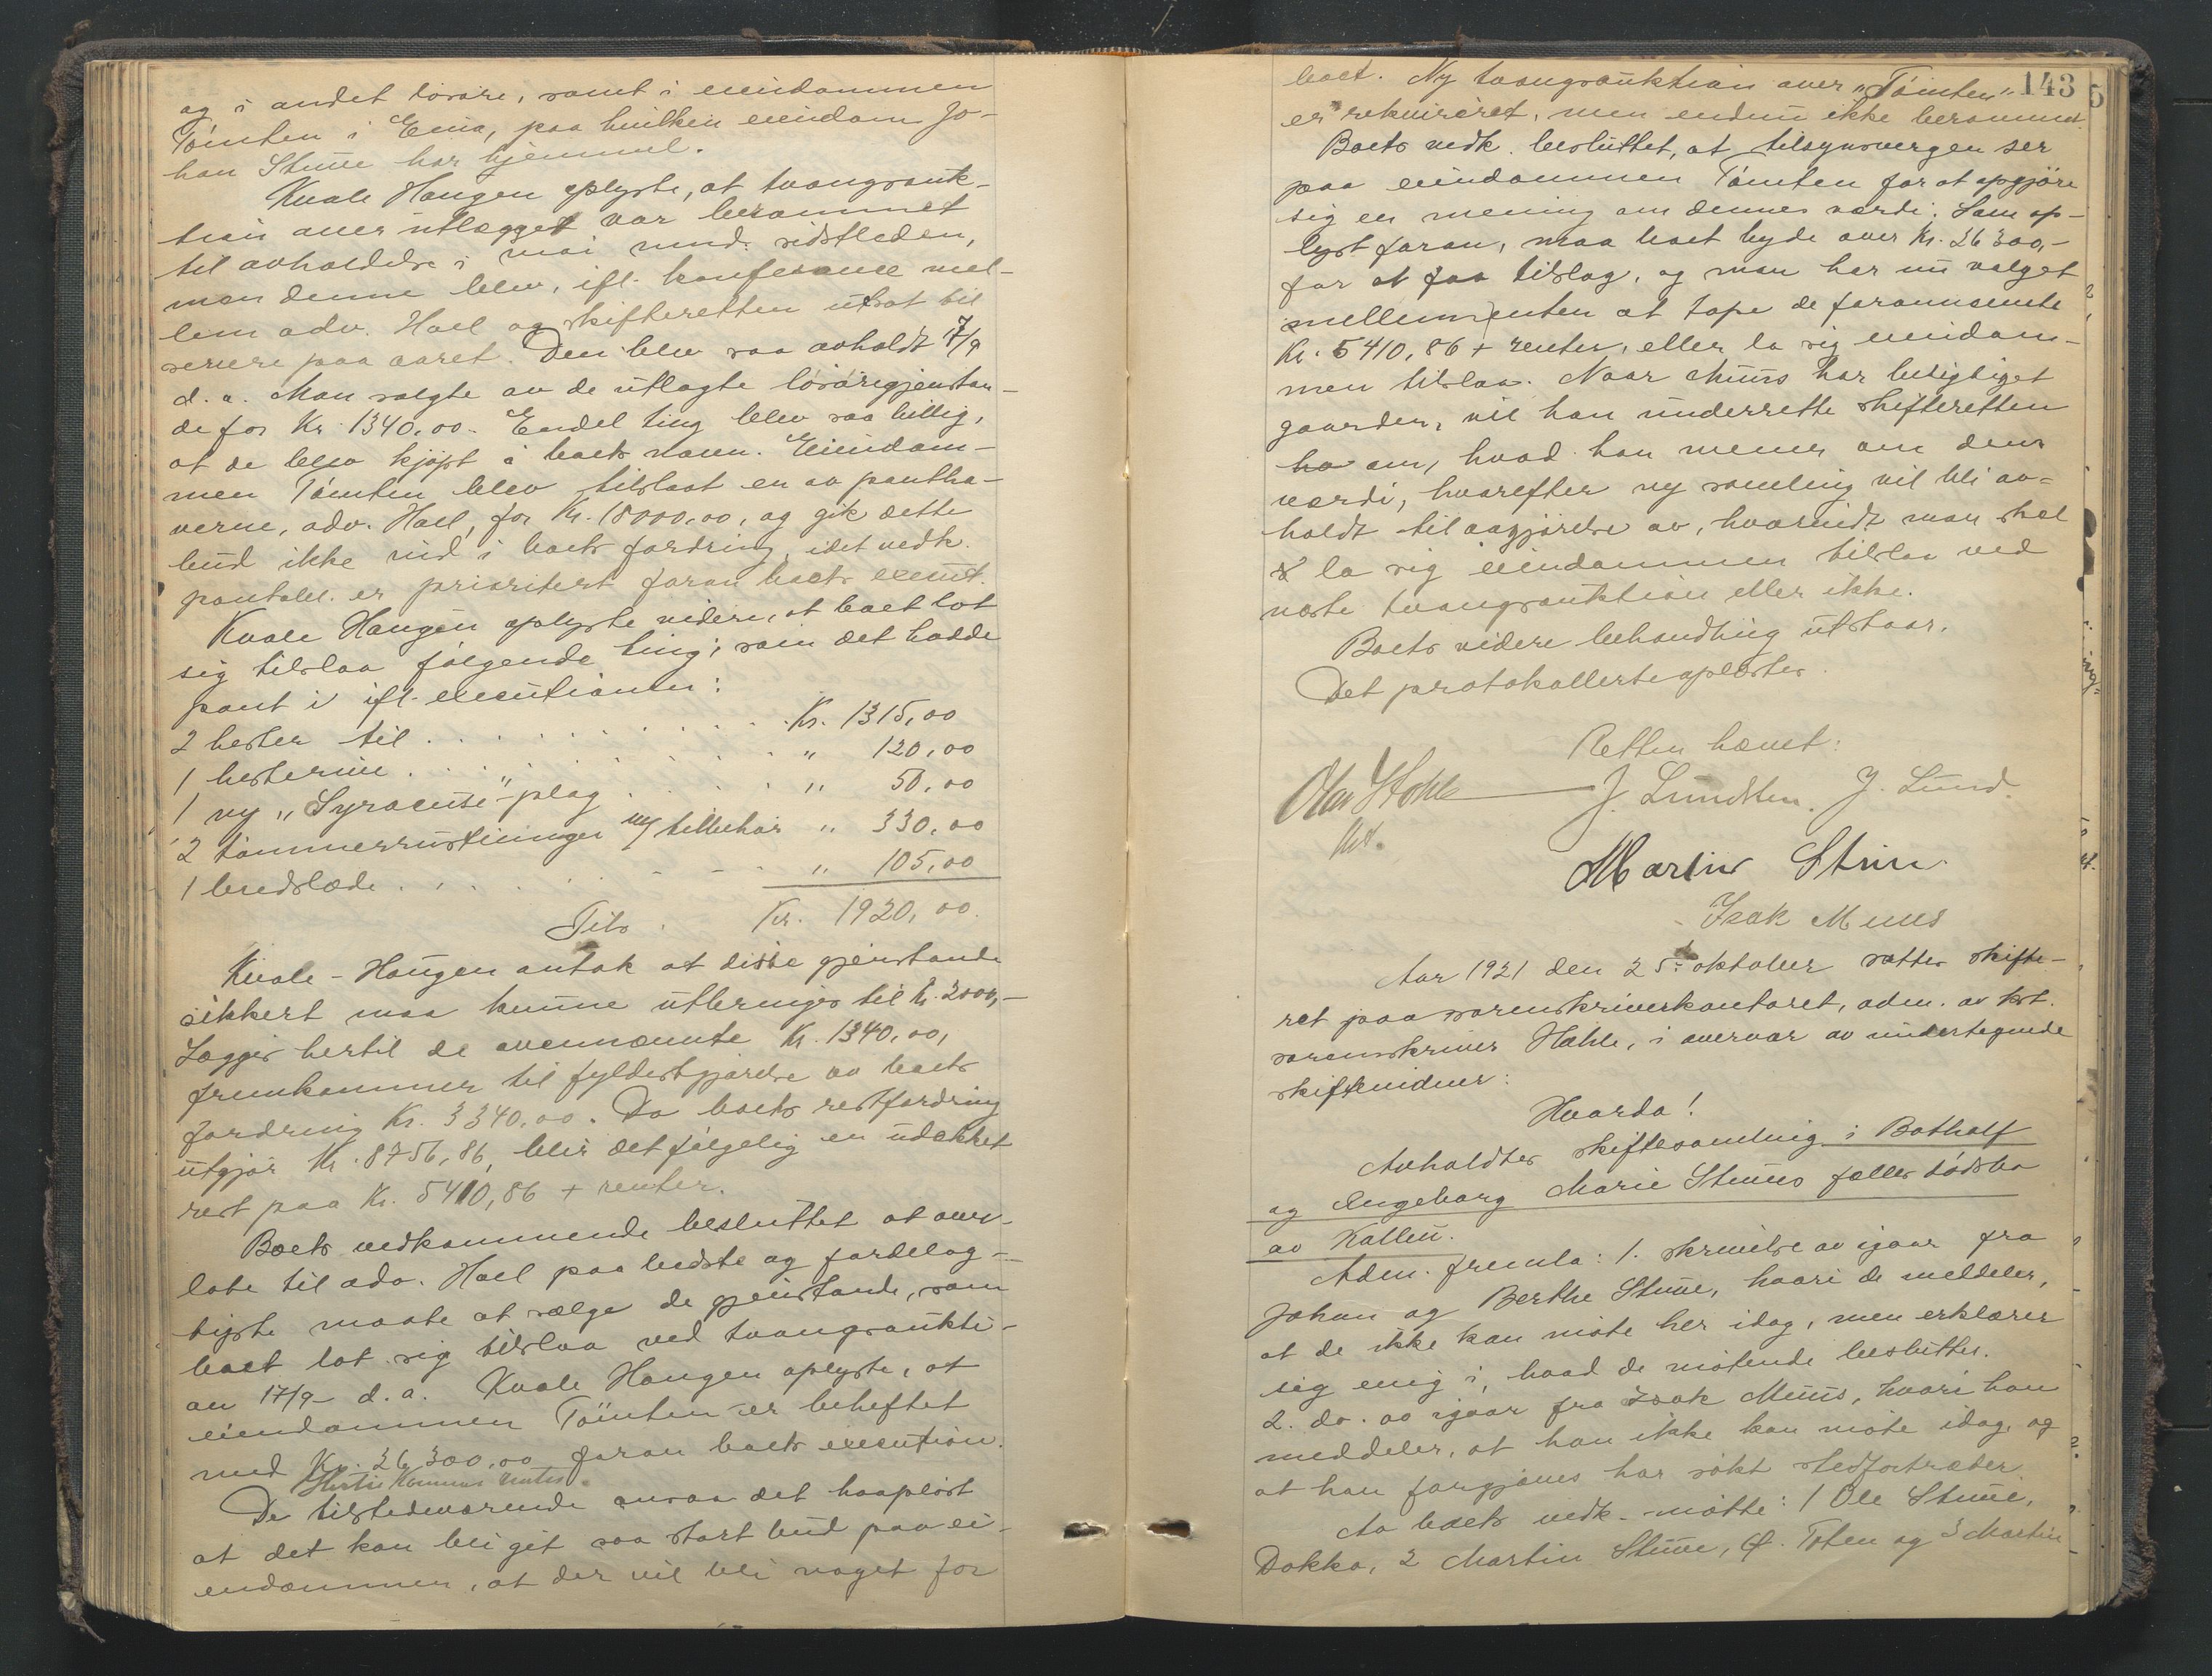 og i andet løsøre, samt i eiendommen
Tømten i Eina, paa hvilken eiendom Jo-
han Stuve har hjemmel.
Kvale Haugen oplyste, at tvangsauk-
tion over utlægget var berammet
til avholdelse i mai mnd. sidstleden,
men denne blev, ifl. konferance mel-
lem adv. Hoel og skifteretten utsat til
senere paa aaret. Den blev saa avholdt 17/9
d. a. Man solgte av de utlagte løsøregjenstan-
de for Kr. 1340,00. Endel ting blev saa billig,
at de blev kjøpt i boets navn. Eiendom-
men Tømten blev tilslaat en av pantha-
verne, adv. Hoel, for Kr. 18000,00, og gik dette
bud ikke ind i boets fordring, idet vedk.
pantobl. er prioritert foran boets execut.
Kvale Haugen oplyste videre, at boet lot
sig tilslaa følgende ting, som det hadde
pant i ifl. executionen:
2 hester til . . . . . . . . . Kr. 1315,00
1 hesterive . . . . . . . . . " 120,00
1 ny "Syracuse"-plog . . . . . " 50,00
2 tømmerrustninger m/ tilbehør " 330,00
1 bredslæde . . . . . . " 105,00
Tils. Kr. 1920,00.
Kvale-Haugen antok at disse gjenstande
sikkert maa kunne utbringes til Kr. 2000,-
Lægges hertil de ovennævnte Kr. 1340,00,
fremkommer til fyldestgjørelse av boets
fordring Kr. 3340,00. Da boets restfordring
utgjør Kr. 8756,86, blir det følgelig en udækket
rest paa Kr. 5410,86 + renter.
Boets vedkommende besluttet at over-
late til adv. Hoel paa bedste og fordelag-
tigste maate at sælge de gjenstande, som
boet lot sig tilslaa ved tvangsaukti-
on 17/9 d. a. Kvale Haugen oplyste, at
eiendommen Tømten er beheftet
med Kr. 26300,00 foran boets execution.
Hertil kommer renter.
De tilstedeværende ansaa det haapløst
at det kan bli git saa stort bud paa ei-
endommen, at der vil bli noget for
143
boet. Ny tvangsauktion over "Tømten"
er rekvireret, men endnu ikke berammet.
Boets vedk. besluttet, at tilsynsvergen ser
paa eiendommen Tømten for at opgjøre
sig en mening om dennes værdi. Som op-
lyst foran, maa boet byde over Kr. 26300,-
for at faa tilslag, og man har nu valget
mellem enten at tape de forannævnte
Kr. 5410,86 + renter, eller la sig eiendom-
men tilslaa. Naar Muus har besigtiget
gaarden, vil han underrette skifteretten
ho om, hvad han mener om dens
værdi, hvorefter ny samling vil bli av-
holdt til avgjørelse av, hvorvidt man skal
la sig eiendommen tilslaa ved
næste tvangsauktion eller ikke.
Boets videre behandling utstaar.
Det protokollerte oplæstes.
Retten hævet:
J. Lundsten. J. Lund.
Martin Stuve
Isak Muus
Aar 1921 den 25. oktober sattes skifte-
ret paa sorenskriverkontoret, adm. av kst.
sorenskriver Hohle, i overvær av undertegnede
skiftevidner:
Hvorda!
Avholdtes skiftesamling i Botholf
og Engeborg Marie Stuves fælles dødsbo
av Kolbu.
Adm. fremla: 1. skrivelse av igaar fra
Johan og Berthe Stuve, hvori de meddeler,
at de ikke kan møte her idag, men erklærer
sig enig i, hvad de møtende beslutter.
2. do. av igaar fra Isak Muus, hvori han
meddeler, at han ikke kan møte idag, og
at han forgjæves har søkt stedfortræder.
Av boets vedk. møtte: 1 Ole Stuve,
Dokka, 2 Martin Stuve, Ø. Toten og 3 Martin